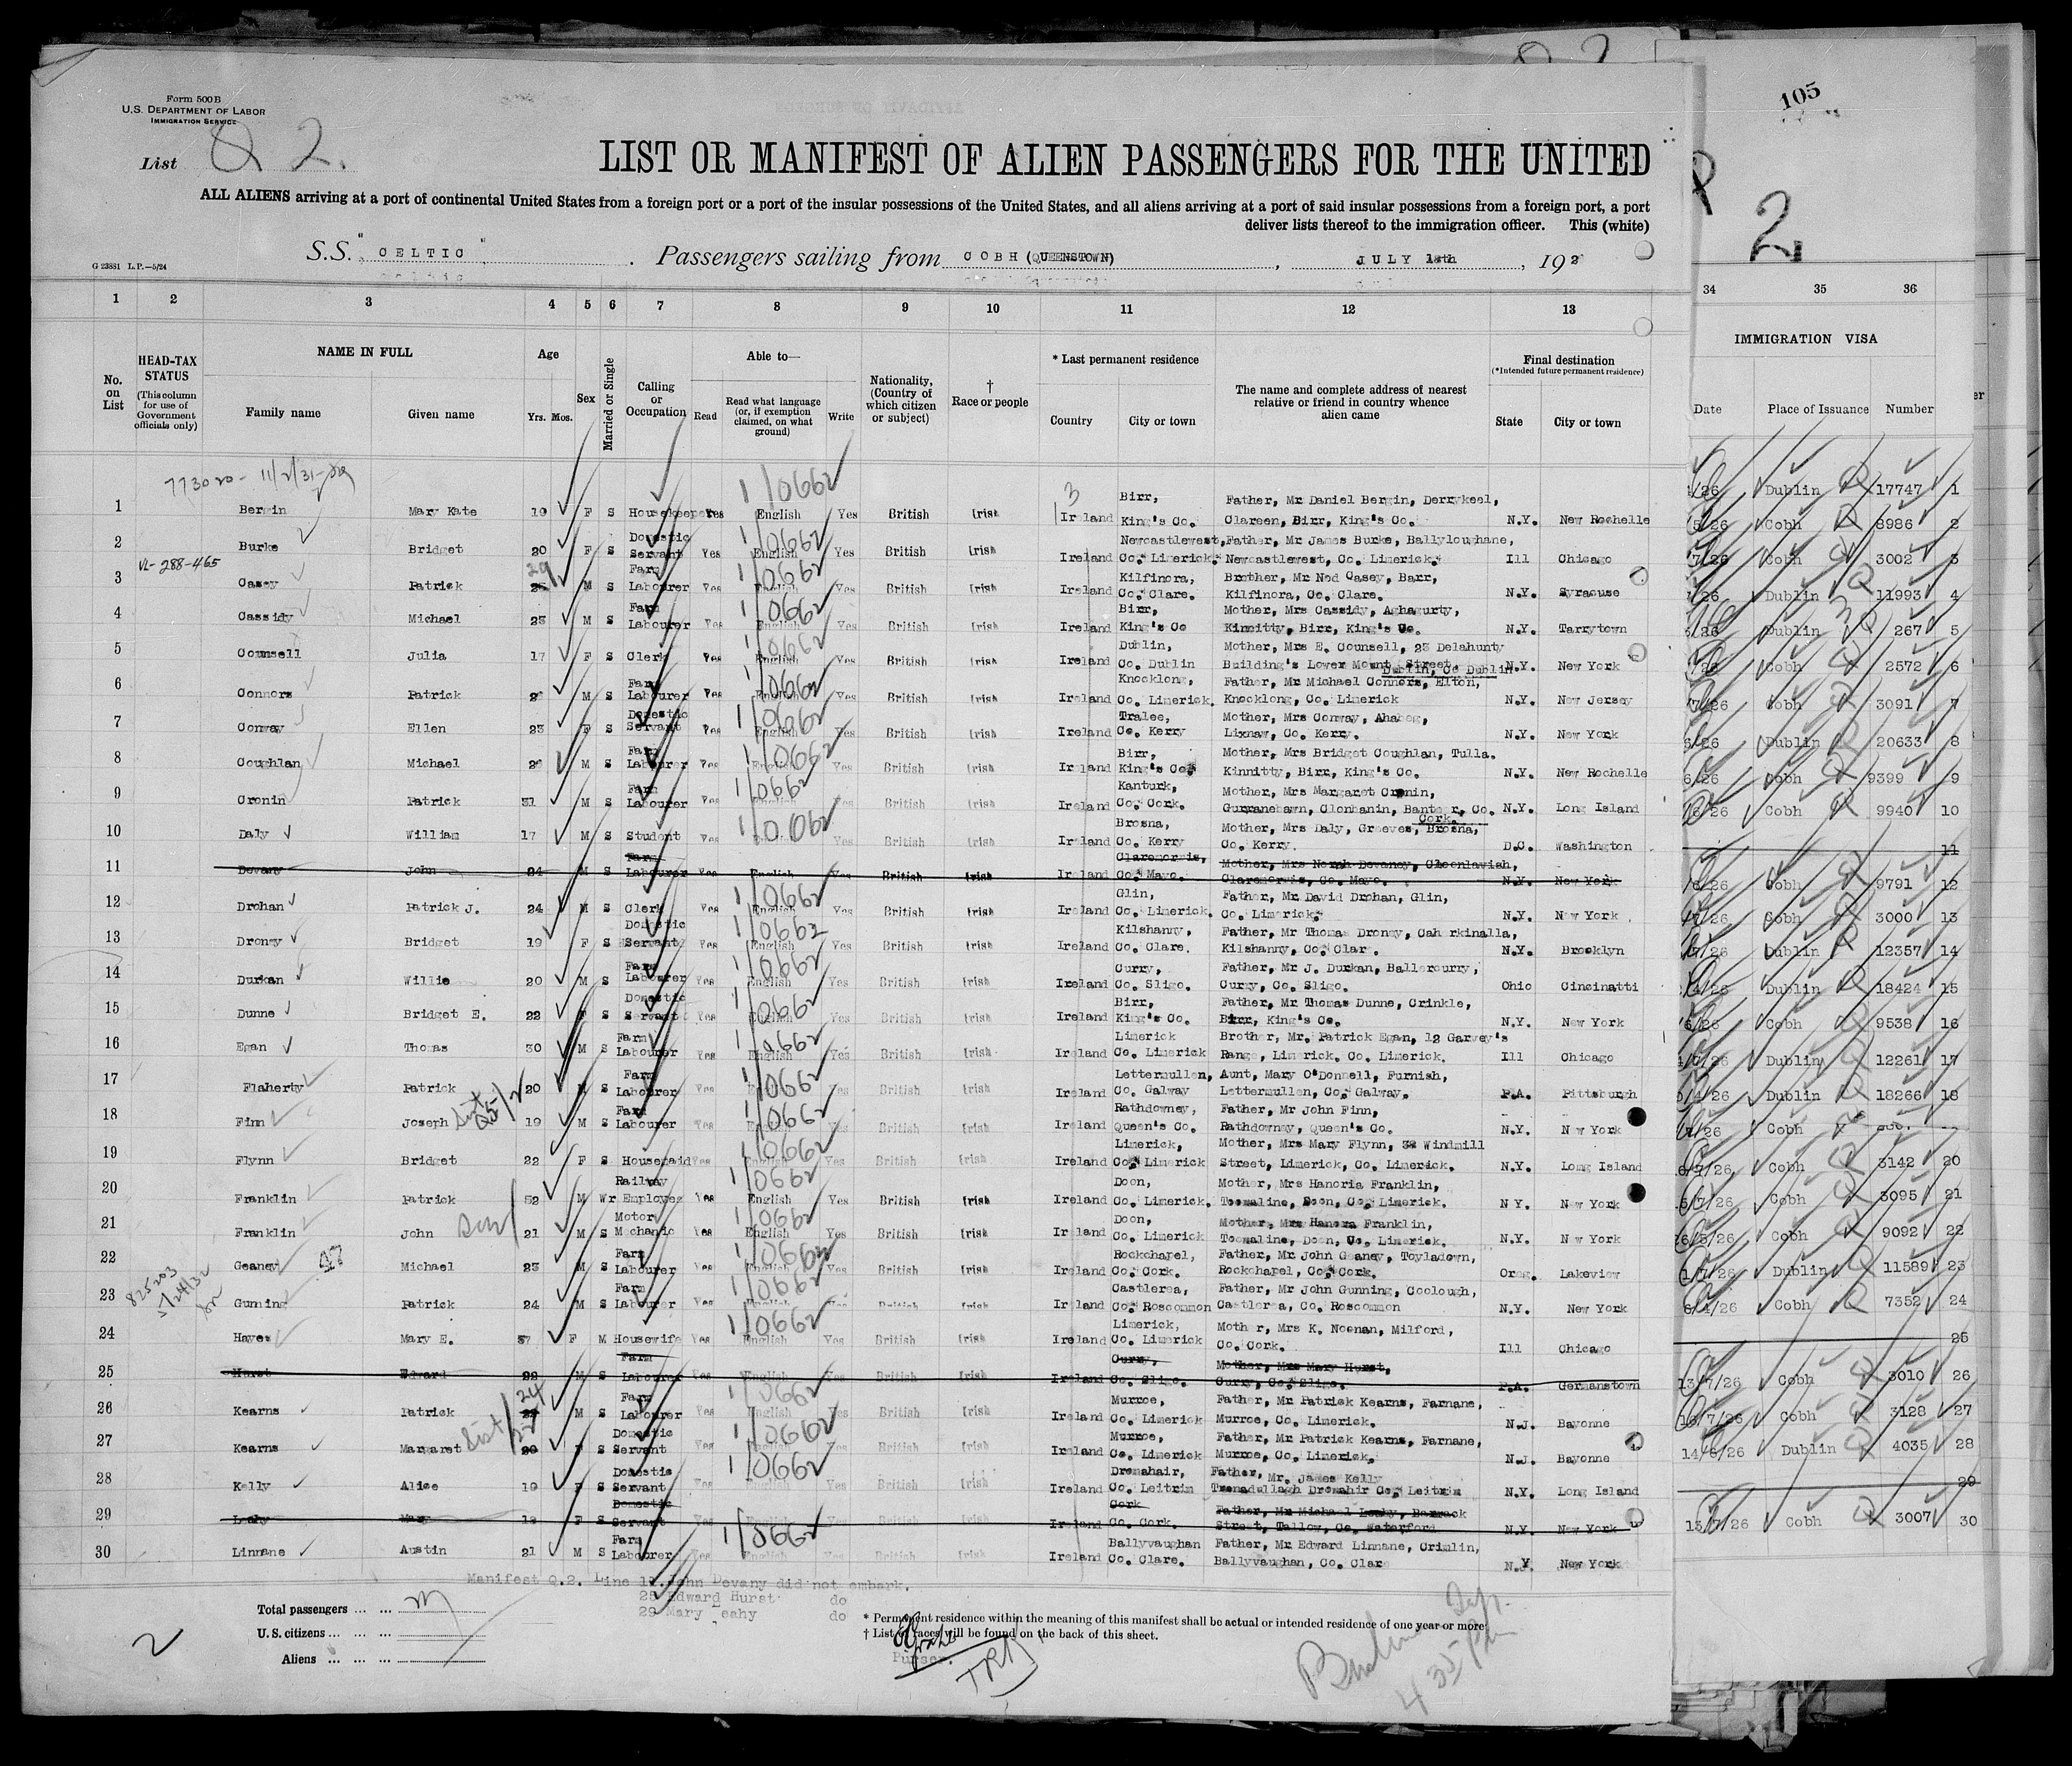 Form 500 B
U.S. DEPARTMENT OF LABOR
IMMIGRATION SERVICE
List Q 2.
LIST OR MANIFEST OF ALIEN PASSENGERS FOR THE UNITED
ALL ALIENS arriving at a port of continental United States from a foreign port or a port of the insular possessions of the United States, and all aliens arriving at a port of said insular possessions from a foreign port, a port
deliver lists thereof to the immigration officer. This (white)
S.S. "CELTIC" Passengers sailing from COBH (QUEENSTOWN), JULY 18th, 192
G 23881 L.P.—5/24
1 2 3 4 5 6 7 8 9 10 11 12 13
No. on List
HEAD-TAX STATUS (This column for use of Government officials only)
NAME IN FULL
Family name Given name
Age Yrs. Mos.
Sex
Married or Single
Calling or Occupation
Able to—
Read Read what language (or, if exemption claimed, on what ground) Write
Nationality, (Country of which citizen or subject)
† Race or people
* Last permanent residence
Country City or town
The name and complete address of nearest relative or friend in country whence alien came
Final destination (*Intended future permanent residence)
State City or town
773020 - 11/2/31
1 Bergin Mary Kate 19 F S Housekeeper Yes English Yes British Irish Ireland Birr, King's Co. Father, Mr Daniel Bergin, Derrykeel, Clareen, Birr, King's Co. N.Y. New Rochelle
2 Burke Bridget 20 F S Domestic Servant Yes English Yes British Irish Ireland Newcastlewest, Co. Limerick. Father, Mr James Burke, Ballyloughane, Newcastlewest, Co. Limerick. Ill Chicago
VL-288-465
3 Casey Patrick 29 M S Farm Labourer Yes English Yes British Irish Ireland Kilfinora, Co. Clare. Brother, Mr Ned Casey, Barr, Kilfinora, Co. Clare. N.Y. Syracuse
4 Cassidy Michael 23 M S Farm Labourer Yes English Yes British Irish Ireland Birr, King's Co Mother, Mrs Cassidy, Aghagurty, Kinnitty, Birr, King's Co. N.Y. Tarrytown
5 Counsell Julia 17 F S Clerk Yes English Yes British Irish Ireland Dublin, Co. Dublin Mother, Mrs E. Counsell, 23 Delahunty Building's Lower Mount Street Dublin, Co Dublin N.Y. New York
6 Connors Patrick M S Farm Labourer Yes English Yes British Irish Ireland Knocklong, Co. Limerick. Father, Mr Michael Connors, Elton, Knocklong, Co. Limerick N.Y. New Jersey
7 Conway Ellen 23 F S Domestic Servant Yes English Yes British Irish Ireland Tralee, Co. Kerry Mother, Mrs Conway, Ahabeg, Lixnaw, Co. Kerry. N.Y. New York
8 Coughlan Michael M S Farm Labourer Yes English Yes British Irish Ireland Birr, King's Co. Mother, Mrs Bridget Coughlan, Tulla. Kinnitty, Birr, King's Co. N.Y. New Rochelle
9 Cronin Patrick 31 M S Farm Labourer Yes English Yes British Irish Ireland Kanturk, Co. Cork. Mother, Mrs Margaret Cronin, Gurranebawn, Clonbanin, Banteer, Co. Cork. N.Y. Long Island
10 Daly William 17 M S Student Yes English Yes British Irish Ireland Brosna, Co. Kerry Mother, Mrs Daly, Greeves, Brosna, Co. Kerry. D.C. Washington
11 Devany John 24 M S Farm Labourer Yes English Yes British Irish Ireland Claremorris, Co. Mayo. Mother, Mrs Norah Devaney, Cloonlavish, Claremorris, Co. Mayo. N.Y. New York
12 Drohan Patrick J. 24 M S Clerk Yes English Yes British Irish Ireland Glin, Co. Limerick. Father, Mr David Drohan, Glin, Co. Limerick. N.Y. New York
13 Droney Bridget 19 F S Domestic Servant Yes English Yes British Irish Ireland Kilshanny, Co. Clare. Father, Mr Thomas Droney, Cah rkinalla, Kilshanny, Co. Clar. N.Y. Brooklyn
14 Durkan Willie 20 M S Farm Labourer Yes English Yes British Irish Ireland Curry, Co. Sligo. Father, Mr J. Durkan, Ballercurry, Curry, Co. Sligo. Ohio Cincinatti
15 Dunne Bridget E. 22 F S Domestic Servant Yes English Yes British Irish Ireland Birr, King's Co. Father, Mr Thomas Dunne, Crinkle, Birr, King's Co. N.Y. New York
16 Egan Thomas 30 M S Farm Labourer Yes English Yes British Irish Ireland Limerick Co. Limerick Brother, Mr. Patrick Egan, 12 Garvey's Range, Limerick. Co. Limerick. Ill Chicago
17 Flaherty Patrick 20 M S Farm Labourer Yes English Yes British Irish Ireland Lettermullen, Co. Galway Aunt, Mary O'Donnell, Furnish, Lettermullen, Co. Galway. P.A. Pittsburgh
18 Finn Joseph 19 M S Farm Labourer Yes English Yes British Irish Ireland Rathdowney, Queen's Co. Father, Mr John Finn, Rathdowney, Queen's Co. N.Y. N w York
19 Flynn Bridget 22 F S Housemaid Yes English Yes British Irish Ireland Limerick, Co. Limerick Mother, Mrs Mary Flynn, 38 Windmill Street, Limerick, Co. Limerick. N.Y. Long Island
20 Franklin Patrick 52 M Wr Railway Employee Yes English Yes British Irish Ireland Doon, Co. Limerick. Mother, Mrs Hanoria Franklin, Toomaline, Doon, Co. Limerick. N Y. New York
21 Franklin John Son 21 M S Motor Mechanic Yes English Yes British Irish Ireland Doon, Co. Limerick Mother, Mrs Hanora Franklin, Toomaline, Doon, Co. Limerick. N.Y. N w York
22 Geaney Michael 23 M S Farm Labourer Yes English Yes British Irish Ireland Rockchapel, Co. Cork. Father, Mr John Geaney, Toyladown, Rockchapel, Co. Cork. Oreg. Lakeview
825203 5/24/32
23 Gunning Patrick 24 M S Farm Labourer Yes English Yes British Irish Ireland Castlerea, Co. Roscommon Father, Mr John Gunning, Coolough, Castlerea, Co. Roscommon N.Y. New York
24 Hayes Mary E. 37 F M Housewife Yes English Yes British Irish Ireland Limerick, Co. Limerick Moth r, Mrs K. Noonan, Milford, Co. Cork. Ill Chicago
25 Hurst Edward 22 M S Farm Labourer Yes English Yes British Irish Ireland Curry, Co. Sligo. Mother, Mrs Mary Hurst, Curry, Co. Sligo. P.A. Germanstown
26 Kearns Patrick 24 M S Farm Labourer Yes English Yes British Irish Ireland Murroe, Co. Limerick Father, Mr Patrick Kearns, Farnane, Murroe, Co. Limerick. N.J. Bayonne
27 Kearns Margaret Sist 20 F S Domestic Servant Yes English Yes British Irish Ireland Murroe, Co. Limerick Father, Mr Patrick Kearns, Farnane, Murroe, Co. Limerick. N.J. Bayonne
28 Kelly Alice 19 F S Domestic Servant Yes English Yes British Irish Ireland Dromahair, Co. Leitrim Father, Mr. James Kelly Dromahir Co. Leitrim N.Y. Long Island
29 Leahy Mary 19 F S Domestic Servant Yes English Yes British Irish Ireland Cork Co. Cork. Father, Mr Michael Leahy, Barrack Street, Tallow, Co. Waterford N.Y. New York
30 Linnane Austin 21 M S Farm Labourer Yes English Yes British Irish Ireland Ballyvaughan Co. Clare. Father, Mr Edward Linnane, Crimlin, Ballyvaughan, Co. Clar N.Y. New York
Manifest Q.2. Line 11. John Devany did not embark.
25 Edward Hurst do
29 Mary Leahy do
Total passengers
U.S. citizens
Aliens
2
* Permanent residence within the meaning of this manifest shall be actual or intended residence of one year or more.
† List of races will be found on the back of this sheet.
Purser.
4 35 PM
105
2
34 35 36
IMMIGRATION VISA
Date Place of Issuance Number
/26 Dublin 17747 1
5/26 Cobh 8986 2
7/26 Cobh 3002 3
/26 Dublin 11993 4
5/26 Dublin 267 5
/26 Cobh 2572 6
7/26 Cobh 3091 7
6/26 Dublin 20633 8
6/26 Cobh 9399 9
6/26 Cobh 9940 10
11
/6/26 Cobh 9791 12
/7/26 Cobh 3000 13
/26 Dublin 12357 14
/26 Dublin 18424 15
/26 Cobh 9538 16
/7/26 Dublin 12261 17
/4/26 Dublin 18266 18
/26 Cobh
6/7/26 Cobh 3142 20
5/7/26 Cobh 3095 21
26/5/26 Cobh 9092 22
1/7/26 Dublin 11589 23
8/4/26 Cobh 7352 24
25
13/7/26 Cobh 3010 26
16/7/26 Cobh 3128 27
14/6/26 Dublin 4035 28
29
13/7/26 Cobh 3007 30